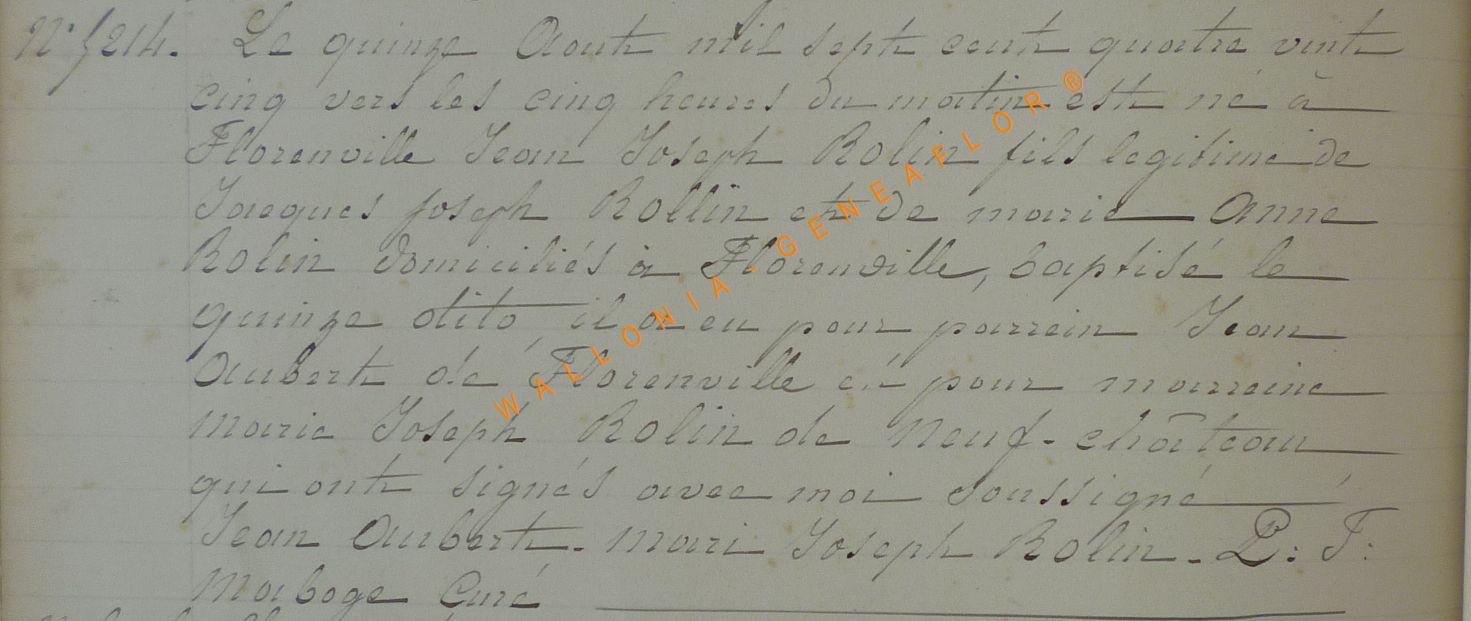 N° 214. Le quinze Aout mil sept cent quatre vint
cinq vers les cinq heures du matin est né à
Florenville Jean Joseph Rolin fils legitime de
Jacques joseph Rollin et de marie Anne
Rolin domiciliés à Florenville, baptisé le
quinze dito, il a eu pour parrein Jean
Aubert de Florenville et pour marreine
Marie Joseph Rolin de Neuf-château
qui ont signés avec moi soussigné
Jean Aubert. Mari Joseph Rolin. P: J:
Maboge Curé
WALLONIA.GENEAFLOR®